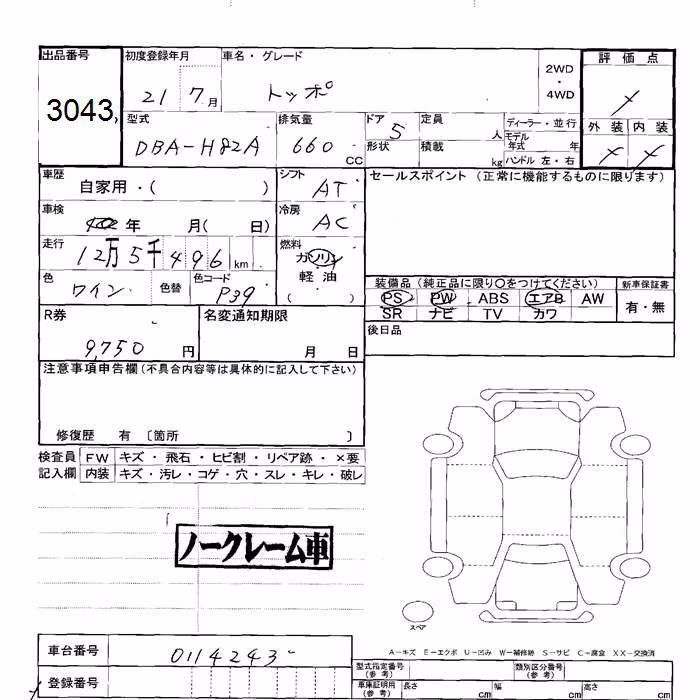 出品番号 初度登録年月 車名・グレード 2WD・4WD 評価点
3043, 21 7月 トッポ
型式 排気量 ドア 定員 ディーラー・並行 外装 内装
DBA-H82A 660CC 5 人 モデル年式 年
形状 積載 kg ハンドル 左・右
車歴 シフト セールスポイント (正常に機能するものに限ります)
自家用・( ) AT
車検 年 月( 日) 冷房 AC
走行 12万5千496km 燃料 ガソリン
軽油
( )
色 ワイン 色替 色コード P39
装備品 (純正品に限り○をつけてください) 新車保証書
PS PW ABS エアB AW 有・無
SR ナビ TV カワ
R券 名変通知期限 後日品
9,750円 月 日
注意事項申告欄(不具合内容等は具体的に記入して下さい)
修復歴 有 〔箇所 〕
検査員 FW キズ・飛石・ヒビ割・リペア跡・×要
記入欄 内装 キズ・汚レ・コゲ・穴・スレ・キレ・破レ
ノークレーム車
スペア
A-キズ E-エクボ U-凹み W-補修跡 S-サビ C-腐食 XX-交換済
車台番号 0114243
型式指定番号(参考) 類別区分番号(参考)
登録番号 車庫証明用(参考) 長さ cm 幅 cm 高さ cm